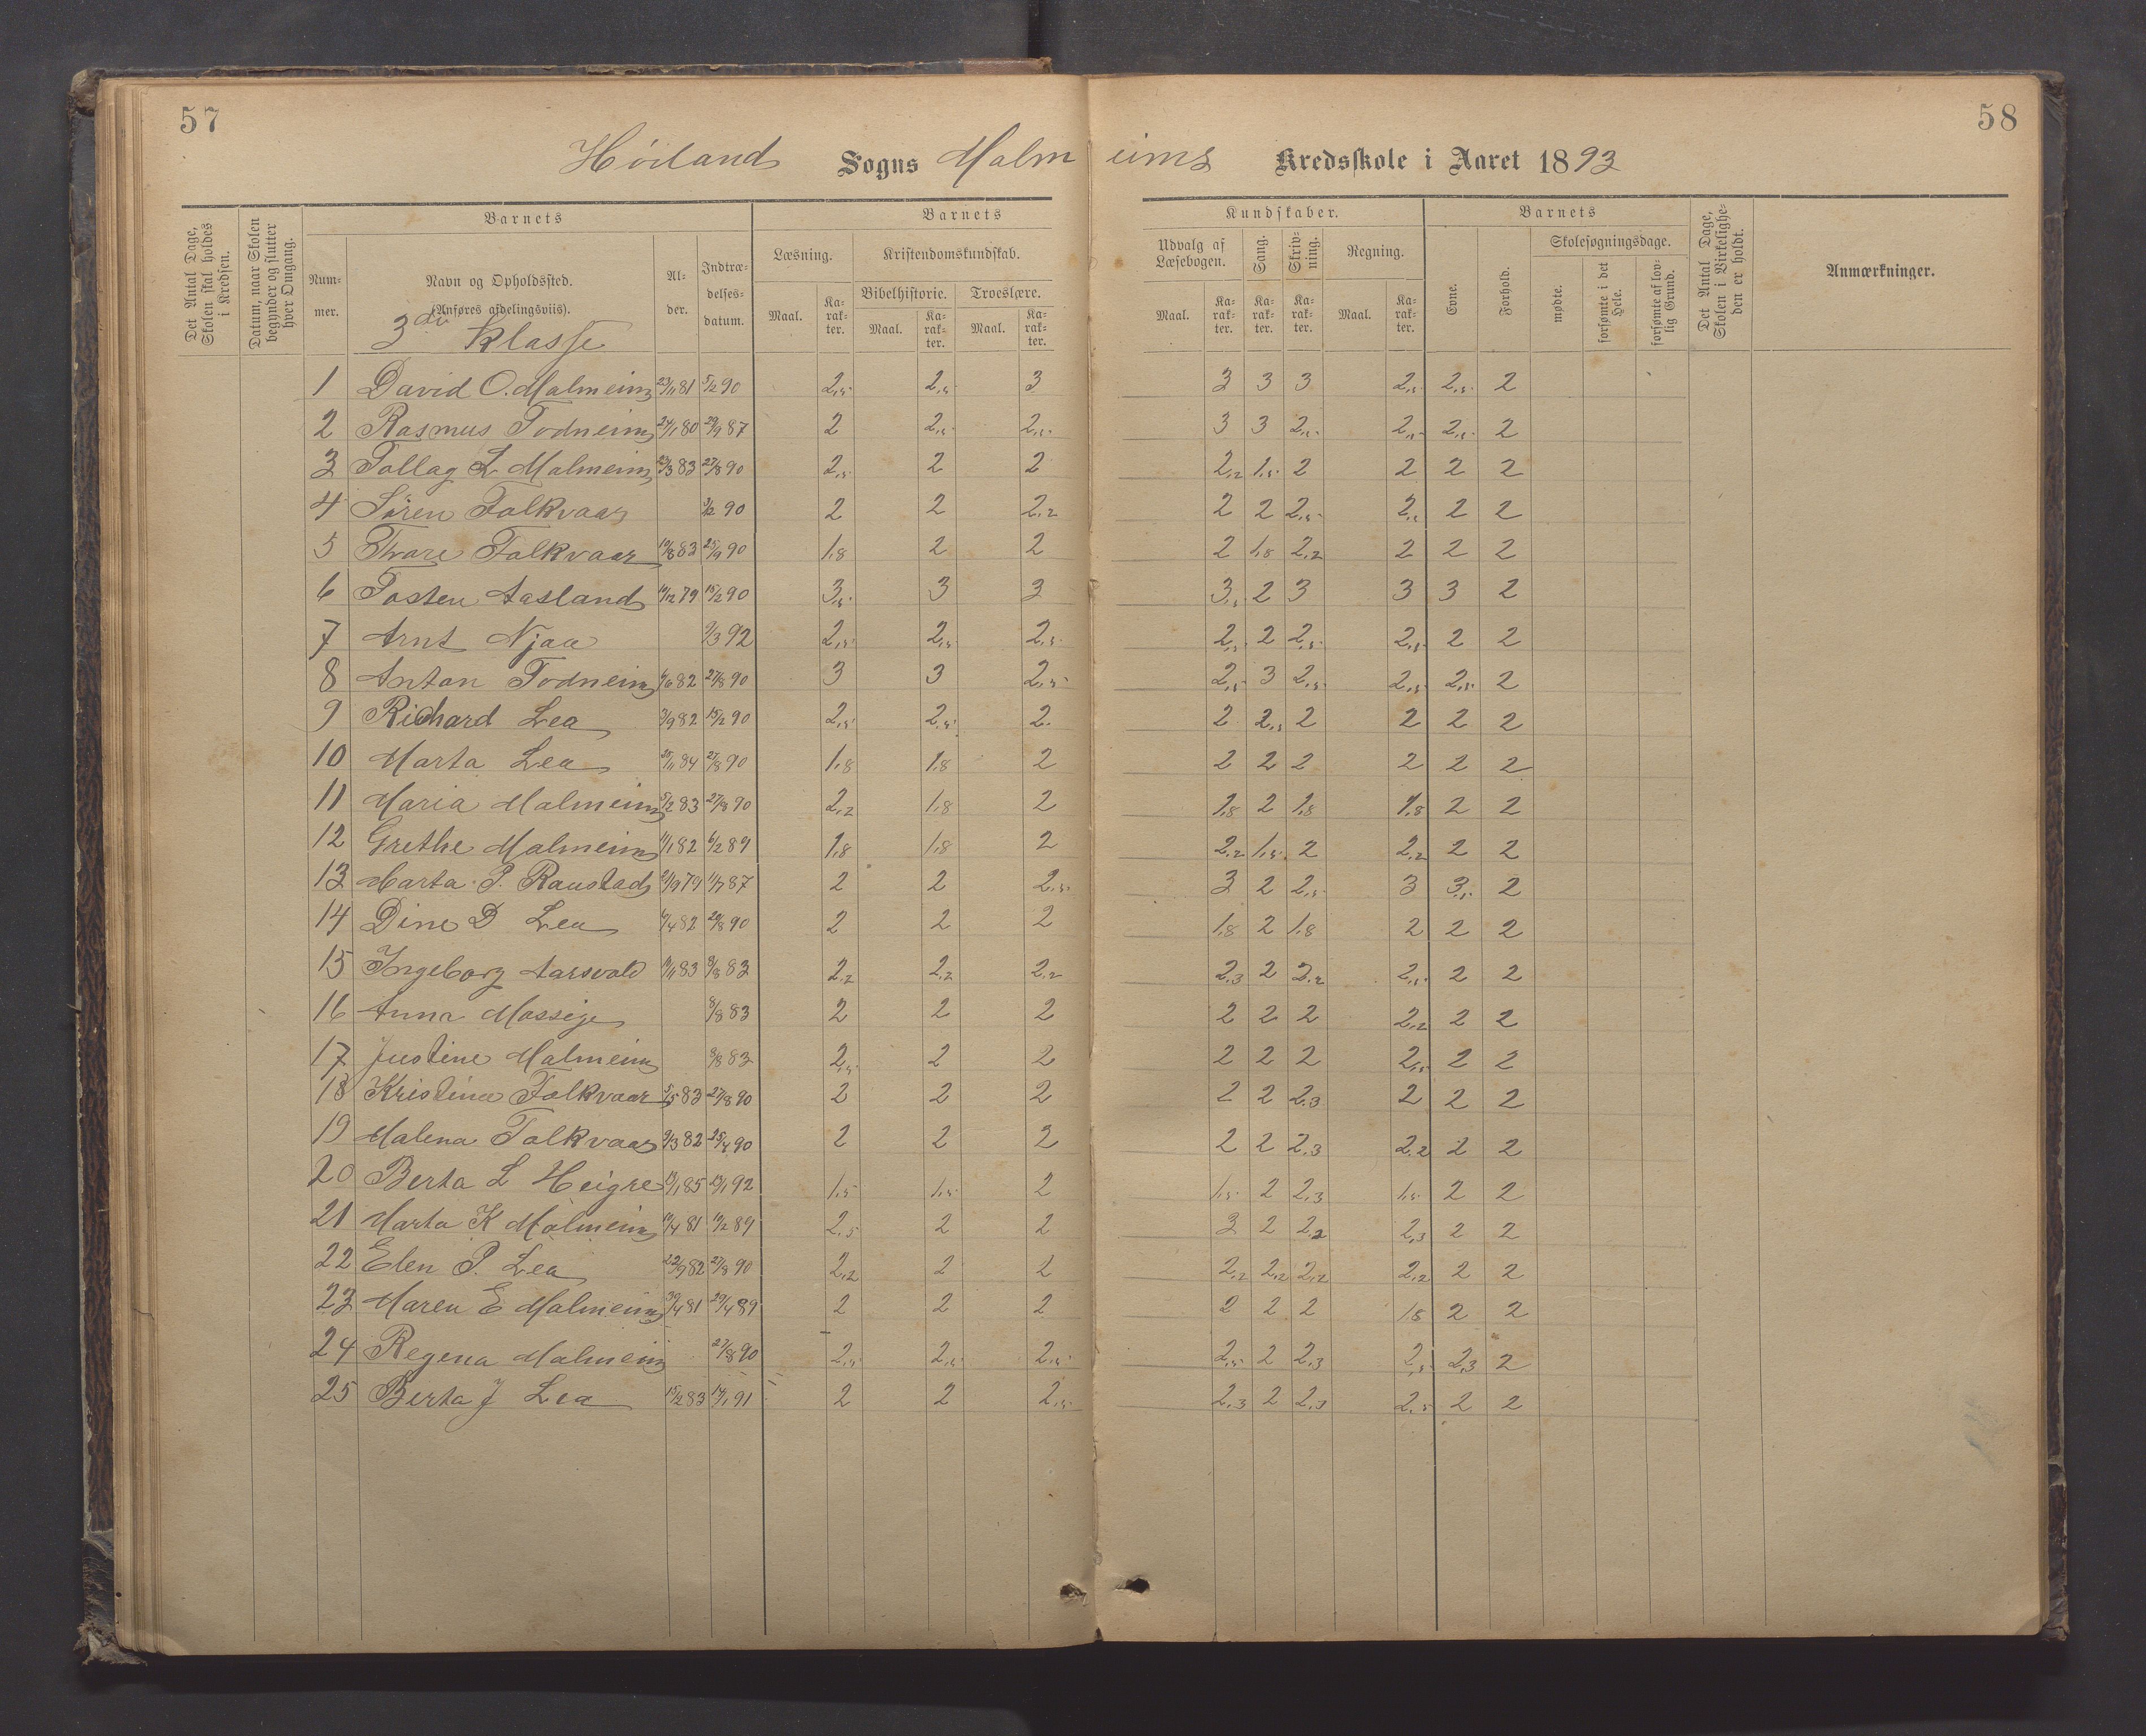 57
58
Høiland Sogns Malmeims Kredsskole i Aaret 1893
Det Antal Dage, Skolen skal holdes i Kredsen.
Datum, naar Skolen begynder og slutter hver Omgang.
Barnets
Num-mer.
Navn og Opholdssted.
(Anføres afdelingsviis).
Al-der.
Indtræ-delses-datum.
Barnets
Læsning.
Maal.
Ka-rak-ter.
Kristendomskundskab.
Bibelhistorie.
Maal.
Ka-rak-ter.
Troeslære.
Maal.
Ka-rak-ter.
Kundskaber.
Udvalg af Læsebogen.
Maal.
Ka-rak-ter.
Sang.
Ka-rak-ter.
Skriv-ning.
Ka-rak-ter.
Regning.
Maal.
Ka-rak-ter.
Barnets
Evne.
Forhold.
Skolesøgningsdage.
mødte.
forsømte i det Hele.
forsømte af lov-lig Grund.
Det Antal Dage, Skolen i Virkelighe-den er holdt.
Anmærkninger.
3die Klasse
1 David O. Malmeim 23/11 81 5/2 90 2,5 2,5 3 3 3 3 2,5 2,5 2
2 Rasmus Todneim 24/1 80 29/9 87 2 2,5 2,5 3 3 2,5 2,5 2,5 2
3 Tollag L Malmeim 23/3 83 27/8 90 2,5 2 2 2,2 1,5 2 2 2 2
4 Søren Folkvaar 5/2 90 2 2 2,2 2 2 2,5 2,2 2 2
5 Tvare Folkvaar 10/8 83 25/9 90 1,8 2 2 2 1,8 2,2 2 2 2
6 Tosten Aasland 11/12 79 15/2 90 3,5 3 3 3,5 2 3 3 3 2
7 Arnt Njaa 9/3 92 2,5 2,5 2,5 2,5 2 2,5 2,5 2 2
8 Anton Todneim 6/6 82 27/8 90 3 3 2,5 2,5 3 2,5 2,5 2,5 2
9 Richard Lea 3/9 82 15/2 90 2,5 2,5 2 2 2,5 2 2 2 2
10 Marta Lea 25/11 84 27/8 90 1,8 1,8 2 2 2 2 2 2 2
11 Maria Malmeim 5/2 83 27/8 90 2,2 1,8 2 1,8 2 1,8 1,8 2 2
12 Grethe Malmeim 11/1 82 6/2 89 1,8 1,8 2 2,2 1,5 2 2,2 2 2
13 Marta P. Raustad 2/9 79 11/7 87 2 2 2,5 3 2 2,5 3 3,5 2
14 Dine D Lea 6/4 82 20/8 90 2 2 2 1,8 2 1,8 2 2 2
15 Ingeborg Aarsvold 10/11 83 8/8 83 2,2 2,2 2,2 2,3 2 2,2 2,5 2 2
16 Anna Massige 8/8 83 2 2 2 2 2 2 2,2 2 2
17 Justine Malmeim 8/8 83 2,5 2 2 2 2 2 2,5 2 2
18 Kristine Folkvaar 5/5 83 27/8 90 2 2 2 2 2 2,3 2 2 2
19 Malena Folkvaar 9/3 82 25/4 90 2 2 2 2 2 2,3 2,2 2 2
20 Berta L Heigre 13/1 85 13/1 92 1,5 1,5 2 1,5 2 2,3 1,5 2 2
21 Marta K Malmeim 10/4 81 19/2 89 2,5 2 2 3 2 2,2 2,3 2 2
22 Elen P. Lea 22/9 82 27/8 90 2,2 2 2 2,2 2,2 2,2 2,2 2 2
23 Maren E Malmeim 30/4 81 29/4 89 2 2 2 2 2 2 18 2 2
24 Regena Malmeim 27/8 90 2,5 2,5 2,5 2,5 2 2,3 2,5 2,3 2
25 Berta J Lea 15/2 83 14/1 91 2 2 2,5 2,3 2 2,3 2,5 2 2